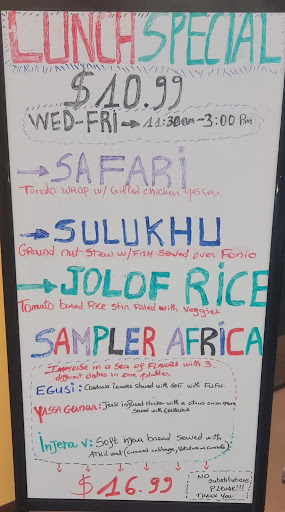 LUNCH SPECIAL
$10.99
WED-FRI → 11:30am-3:00 Pm
→ SAFARI
Tomato WRAP w/ Grilled chicken yassa
→ SULUKHU
GROUND nut Stew w/FISH served over Fonio
→ JOLOF RICE
Tomato based Rice stir Fried with veggies
SAMPLER AFRICA
Immerse in a sea of FLAVORS with 3
different dishes in one platter
EGUSI: Cassava leaves stewed with GOAT with FUFU
YASSA GANAR: Jerk infused chicken with a citrus onion gravy
served with COUSCOUS
INJERA V: Soft injera bread served with
Atkilt wat (curried cabbage, potatoes & carrots)
$16.99
NO
Substitutions
Please!!!
Thank you